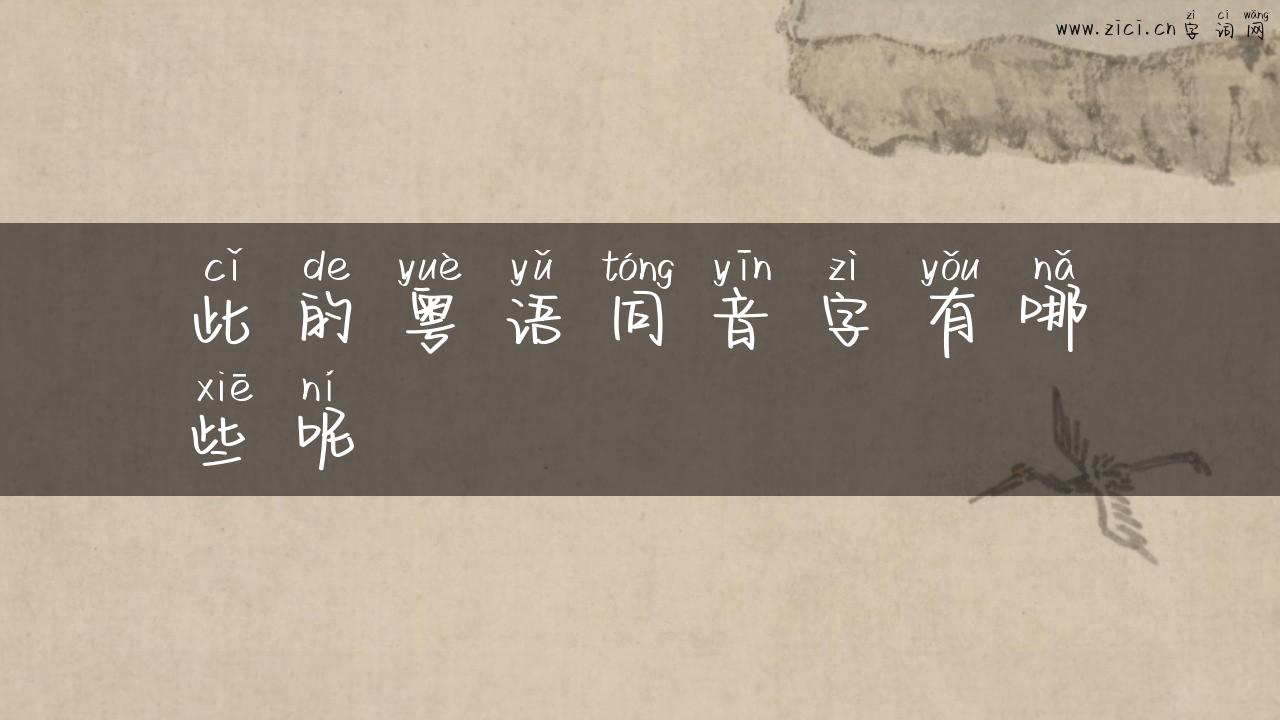 zì cí wǎng
www.zici.cn 字词网
cǐ de yuè yǔ tóng yīn zì yǒu nǎ
此的粤语同音字有哪
xiē ní
些呢